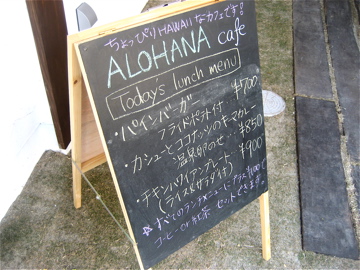 ちょっぴりHAWAIIなカフェです!
ALOHANA cafe
Today's lunch menu
・パインバーガー ¥700
フライドポテト付
・カシューとココナッツのキーマカレー ¥850
温泉卵のせ
・チキンハワイアンプレート ¥900
(ライス&サラダ付)
すべてのランチメニューにプラス¥100で
コーヒー or 紅茶 セットできます。